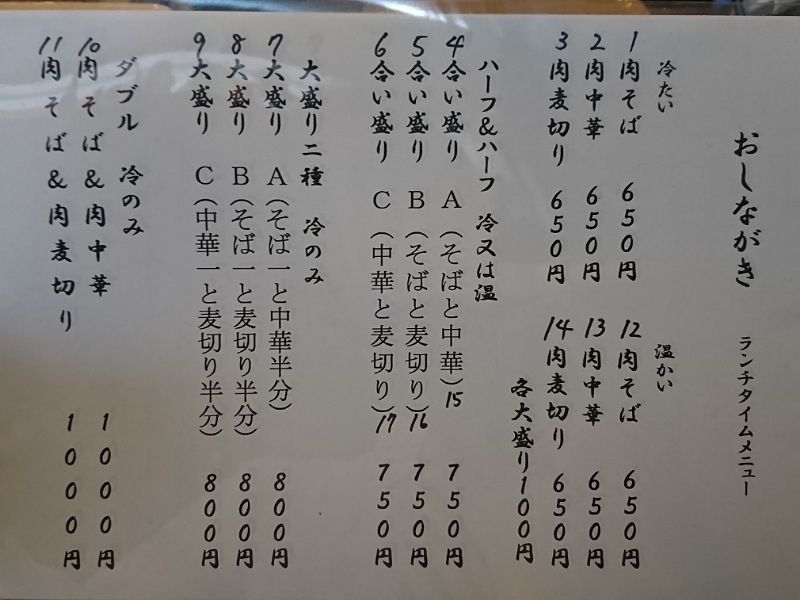 おしながき
ランチタイムメニュー
冷たい
1肉そば 650円
2肉中華 650円
3肉麦切り 650円
温かい
12肉そば 650円
13肉中華 650円
14肉麦切り 650円
各大盛り100円
ハーフ&ハーフ 冷又は温
4合い盛り A(そばと中華)15 750円
5合い盛り B(そばと麦切り)16 750円
6合い盛り C(中華と麦切り)17 750円
大盛り二種 冷のみ
7大盛り A(そば一と中華半分) 800円
8大盛り B(そば一と麦切り半分) 800円
9大盛り C(中華一と麦切り半分) 800円
ダブル 冷のみ
10肉そば&肉中華 1000円
11肉そば&肉麦切り 1000円